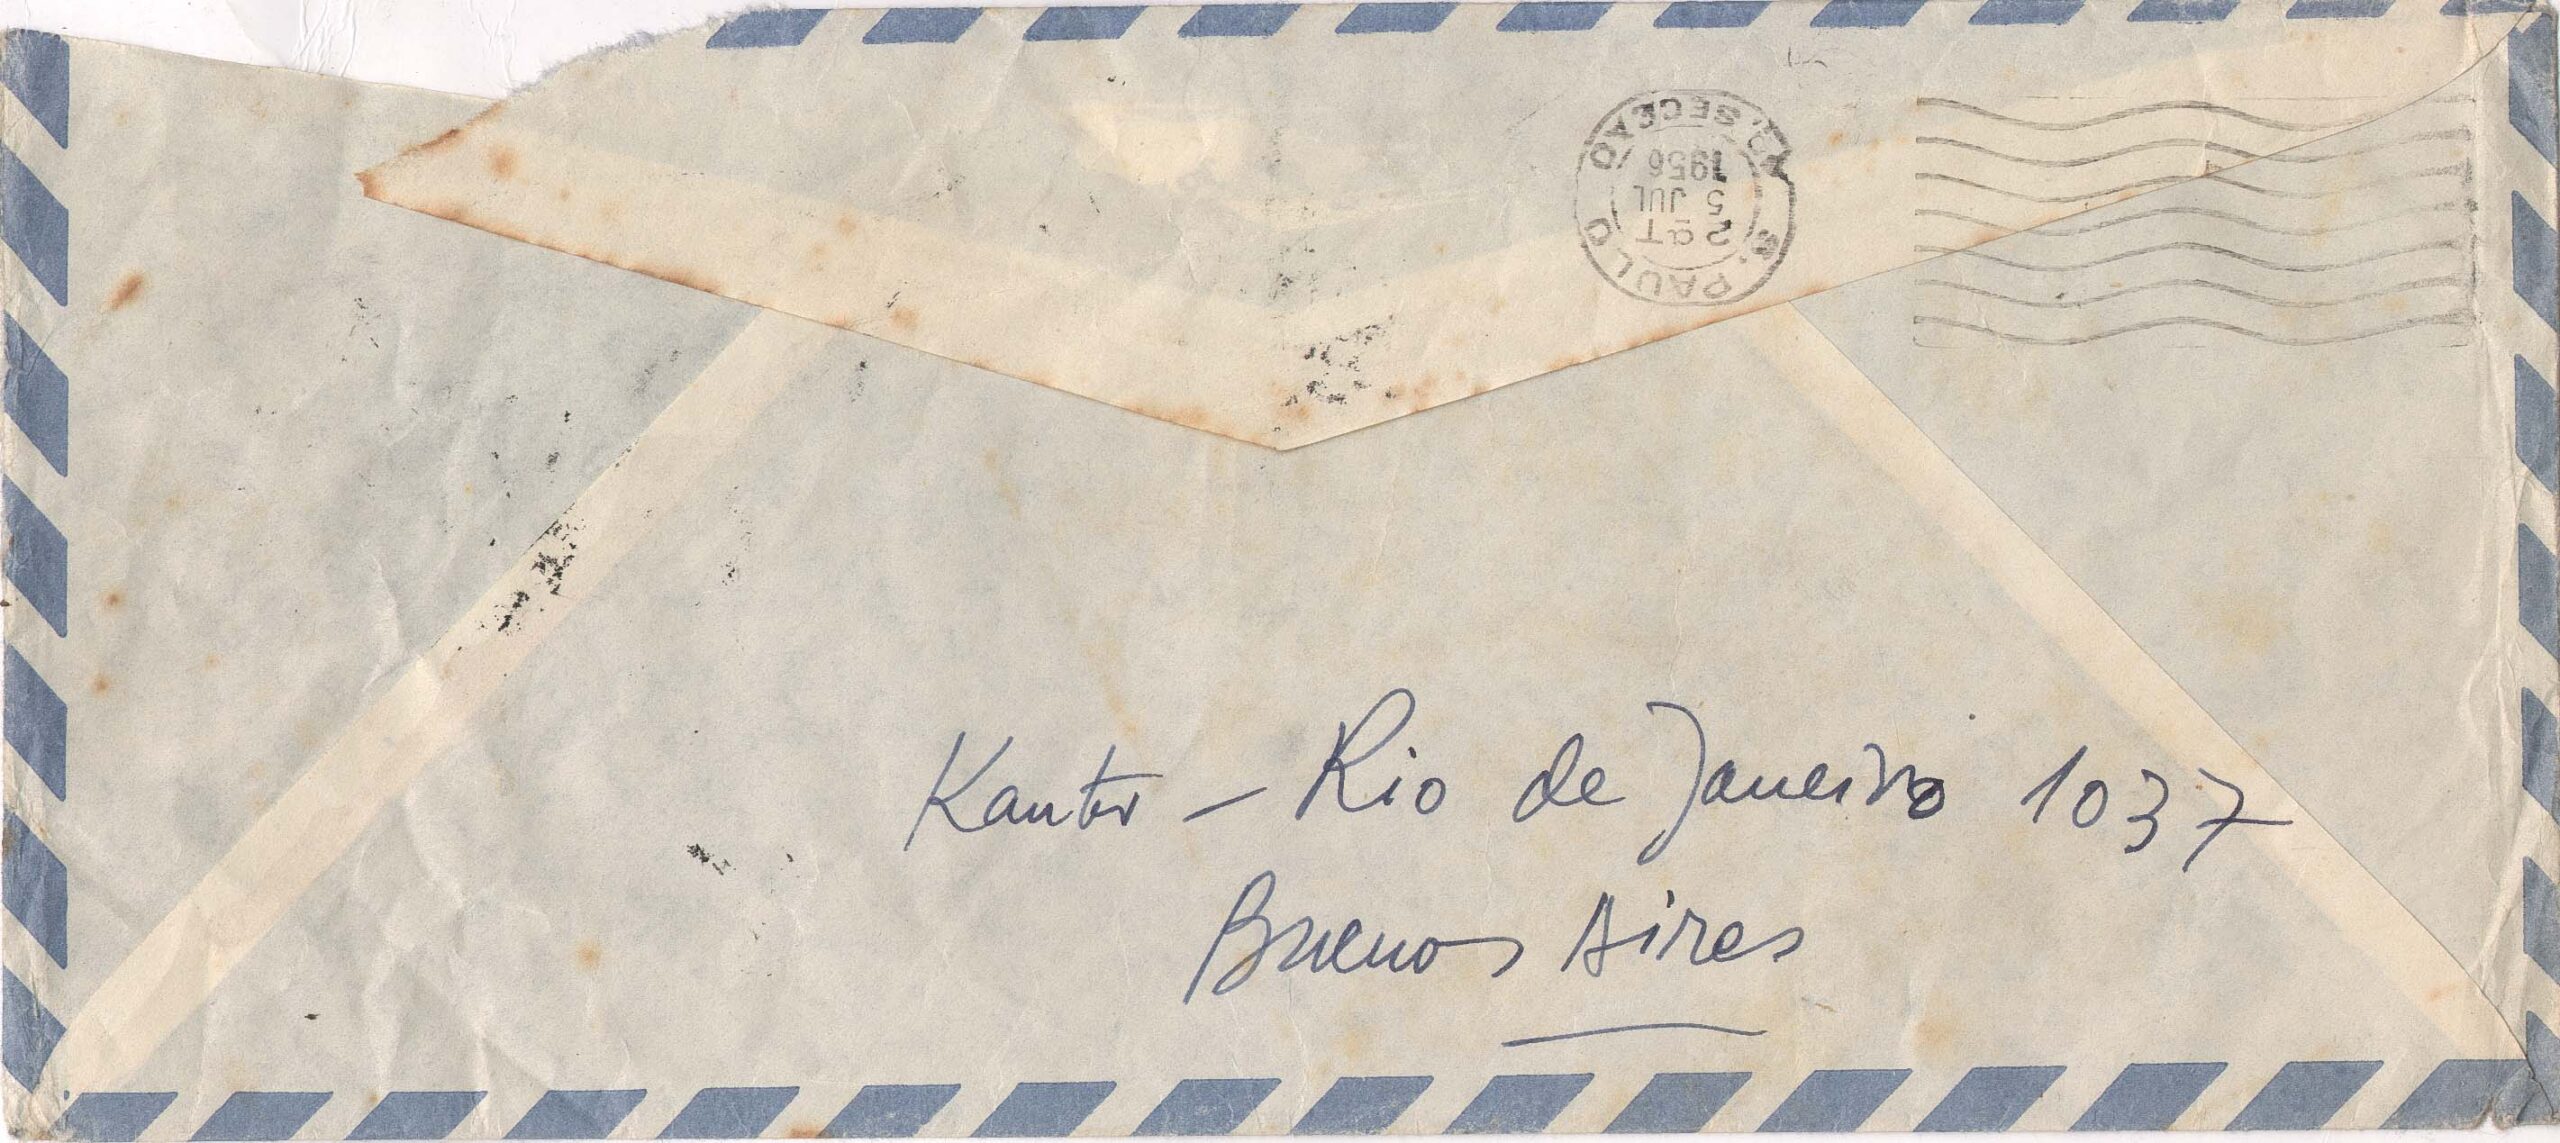 S. PAULO
2ªT
5 JUL
1956
SECCAO
Kantor - Rio de Janeiro 1037
Buenos Aires